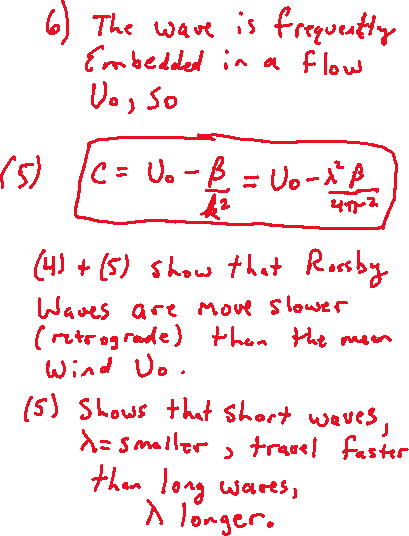 6) The wave is frequently
Embedded in a flow
U₀, so
(5) C = U₀ - β/k² = U₀ - λ²β/4π²
(4) + (5) show that Rossby
Waves are move slower
(retrograde) than the mean
Wind U₀.
(5) Shows that short waves,
λ = smaller, travel faster
than long waves,
λ longer.